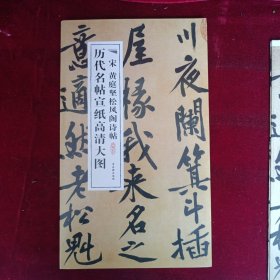 川夜阑箕斗插
屋椽我来名之
意适然老松魁
宋 黄庭坚松风阁诗帖
历代名帖宣纸高清大图